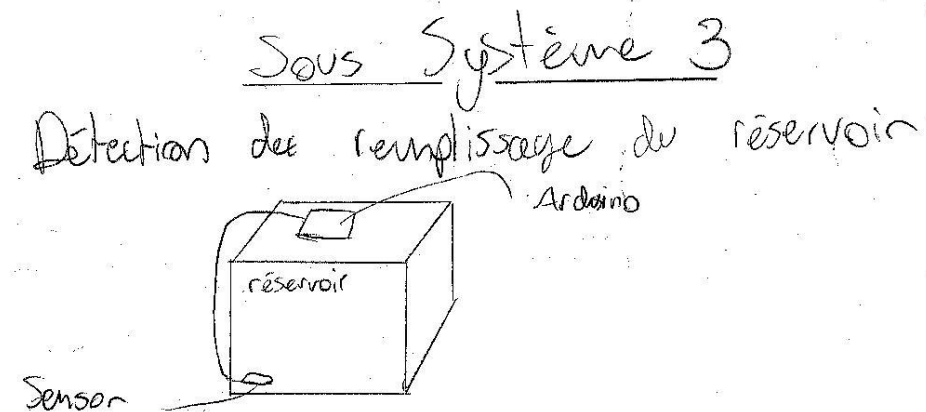 Sous Système 3
Détection de remplissage du réservoir
Arduino
réservoir
Sensor